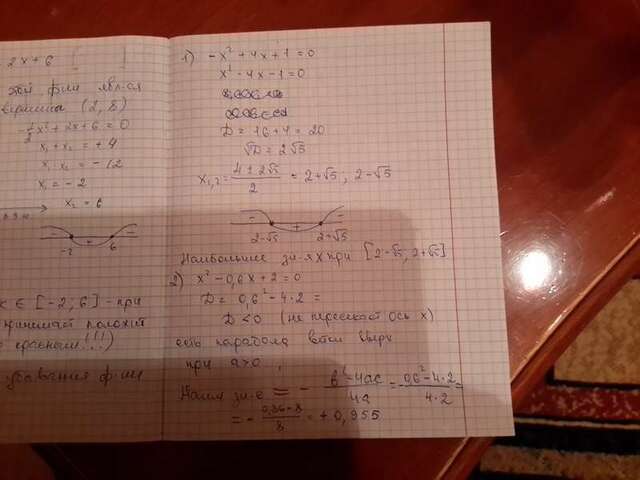 2x + 6
этой ф-ии явл-ся
вершина (2, 8)
-1/2x² + 2x + 6 = 0
x₁ + x₂ = +4
x₁ · x₂ = -12
x₁ = -2
x₂ = 6
-
+
-
-2
6
x ∈ [-2; 6] - при
принимает полож
красным!!!)
убывания ф-ии
1) -x² + 4x + 1 = 0
x² - 4x - 1 = 0
D = 16 + 4 = 20
√D = 2√5
x₁,₂ = (4 ± 2√5)/2 = 2+√5, 2-√5
-
+
-
2-√5
2+√5
Наибольшие зн-я x при [2-√5; 2+√5]
2) x² - 0,6x + 2 = 0
D = 0,6² - 4·2 =
D < 0 (не пересекает ось x)
есть парабола ветви вверх
при a>0,
Наим зн-е = - (b²-4ac)/4a = (0,6²-4·2)/(4·2) =
= - (0,36-8)/8 = +0,955